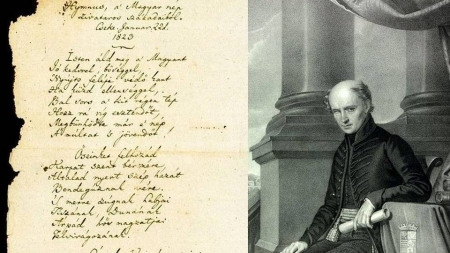 Hymnus, a Magyar nép
zivataros századaiból.
Cseke, Januar. 22d.
1823
Isten áldd meg a Magyart
Jó kedvvel, bőséggel,
Nyújts feléje védő kart
Ha küzd ellenséggel,
Bal sors a kit régen tép
Hozz rá víg esztendőt,
Megbűnhődte már e nép
A multat s jövendőt!
Őseinket felhozád
Kárpát szent bérczére
Általad nyert szép hazát
Bendegúznak vére.
S merre zúgnak habjai
Tiszának, Dunának
Árpád hős magzatjai
Felvirágozának.